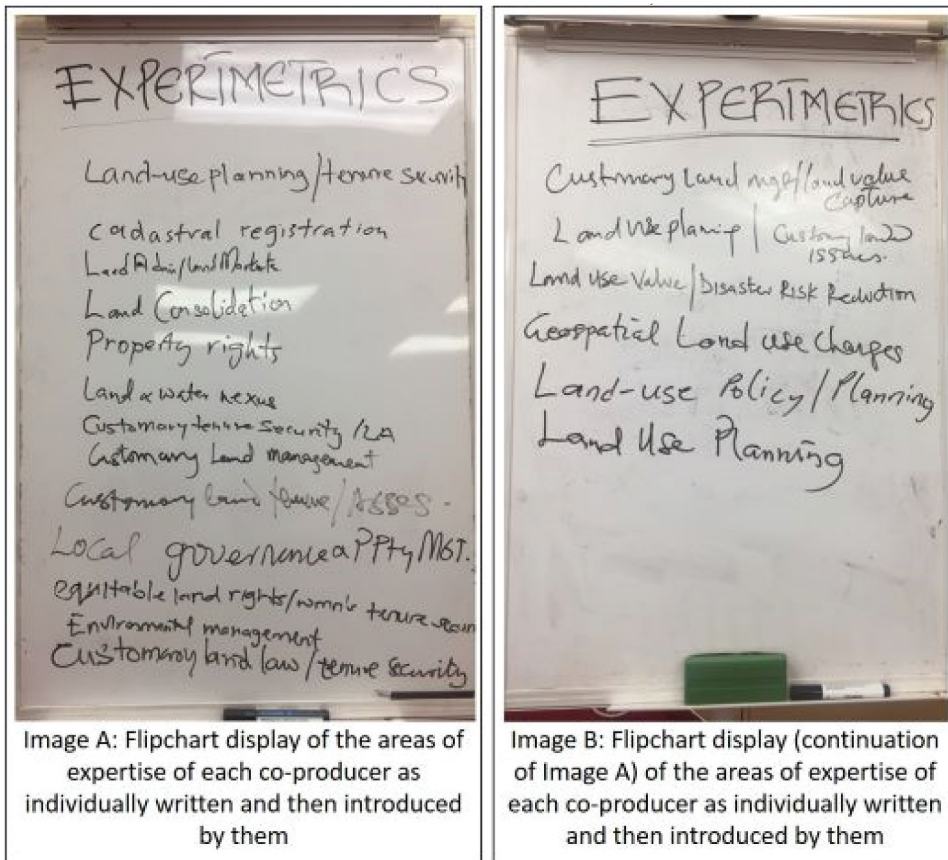 EXPERIMETRICS
Land-use planning/tenure security
cadastral registration
Land Admin/Land Markets
Land Consolidation
Property rights
Land & water nexus
Customary tenure security /LA
Customary Land management
Customary land tenure/Asses.
Local governance & PPty MGT.
equitable land rights/women's tenure secur
Environmental management
Customary land law/tenure security
Image A: Flipchart display of the areas of
expertise of each co-producer as
individually written and then introduced
by them
EXPERIMETRICS
Customary Land mgt/land value
capture
Land use planing / Customy land
issues.
Land Use Value/Disaster Risk Reduction
Geospatial Land use Changes
Land-use Policy/Planning
Land Use Planning
Image B: Flipchart display (continuation
of Image A) of the areas of expertise of
each co-producer as individually written
and then introduced by them